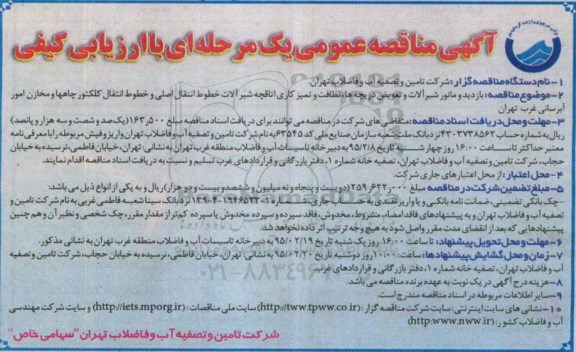 آگهی مناقصه عمومی یک مرحله‌ای با ارزیابی کیفی
۱- نام دستگاه مناقصه گزار: شرکت تامین و تصفیه آب و فاضلاب تهران.
۲- موضوع مناقصه: بازدید و مانور شیرآلات و تعویض دریچه ها و نظافت و تمیز کاری اتاقچه شیر آلات خطوط انتقال اصلی و خطوط انتقال کلکتور چاهها و مخازن امور
آبرسانی غرب تهران
۳- مهلت و محل دریافت اسناد مناقصه: متقاضی های شرکت در مناقصه می توانند برای دریافت اسناد مناقصه مبلغ ۱۶۳٫۵۰۰ (یکصد و شصت و سه هزار و پانصد)
ریال به شماره حساب ۴۳۰۳۷۳۸۵۶۲ نزد بانک ملت شعبه سازمان صنایع ملی کد ۶۳۵۴۵ به نام شرکت تامین و تصفیه آب و فاضلاب تهران واریز و فیش مربوطه را با معرفی نامه
معتبر حداکثر تا ساعت ۱۶:۰۰ روز چهار شنبه تاریخ ۹۵/۲/۸ به دبیرخانه تاسیسات آب و فاضلاب منطقه غرب تهران به نشانی: تهران، خیابان فاطمی، نرسیده به خیابان
حجاب، شرکت تامین و تصفیه آب و فاضلاب تهران، تصفیه خانه شماره ۱، دفتر بازرگانی و قراردادهای غرب تسلیم و نسبت به دریافت اسناد مناقصه اقدام نمایند.
۴- محل اعتبار: از محل اعتبارهای جاری شرکت.
۵- مبلغ تضمین شرکت در مناقصه مبلغ ۲۵۹٫۶۲۲٫۰۰۰ (دویست و پنجاه و نه میلیون و ششصد و بیست و دو هزار) ریال و به یکی از انواع ذیل می باشد:
- چک بانکی تضمینی، ضمانت نامه بانکی و یا واریز نقدی به حساب جاری، به شماره نزد بانک سینا شعبه فاطمی غربی به نام شرکت تامین و
تصفیه آب و فاضلاب تهران و به پیشنهادهای فاقد امضاء، مشروط، مخدوش، فاقد سپرده و سپرده مخدوش یا سپرده کم تر از مقدار مقرر، چک شخصی و نظیر آن و هم چنین
پیشنهادهایی که بعد از انقضای مدت مقرر واصل شود به هیچ وجه ترتیب اثر داده نخواهد شد.
۶- مهلت و محل تحویل پیشنهاد: تا ساعت ۱۶:۰۰ روز یک شنبه تاریخ ۹۵/۰۲/۱۹ به دبیر خانه تاسیسات آب و فاضلاب منطقه غرب تهران به نشانی مذکور.
۷- زمان و محل گشایش پیشنهادها: ساعت ۱۰:۰۰ روز دوشنبه تاریخ ۹۵/۰۲/۲۰ به نشانی: تهران، خیابان فاطمی، نرسیده به خیابان حجاب، شرکت تامین و تصفیه
آب و فاضلاب تهران، تصفیه خانه شماره ۱، دفتر بازرگانی و قراردادهای غرب.
۸- هزینه درج آگهی در یک نوبت به عهده برنده مناقصه می باشد.
۹- سایر اطلاعات مربوطه در اسناد مناقصه مندرج است.
۱۰- نشانی های سایت اینترنتی: سایت شرکت مناقصه گزار: (http://tww.tpww.co.ir) سایت ملی مناقصات: (http://iets.mporg.ir) و سایت شرکت مهندسی
آب و فاضلاب کشور: (http:www.nww.ir)
شرکت تامین و تصفیه آب و فاضلاب تهران "سهامی خاص"